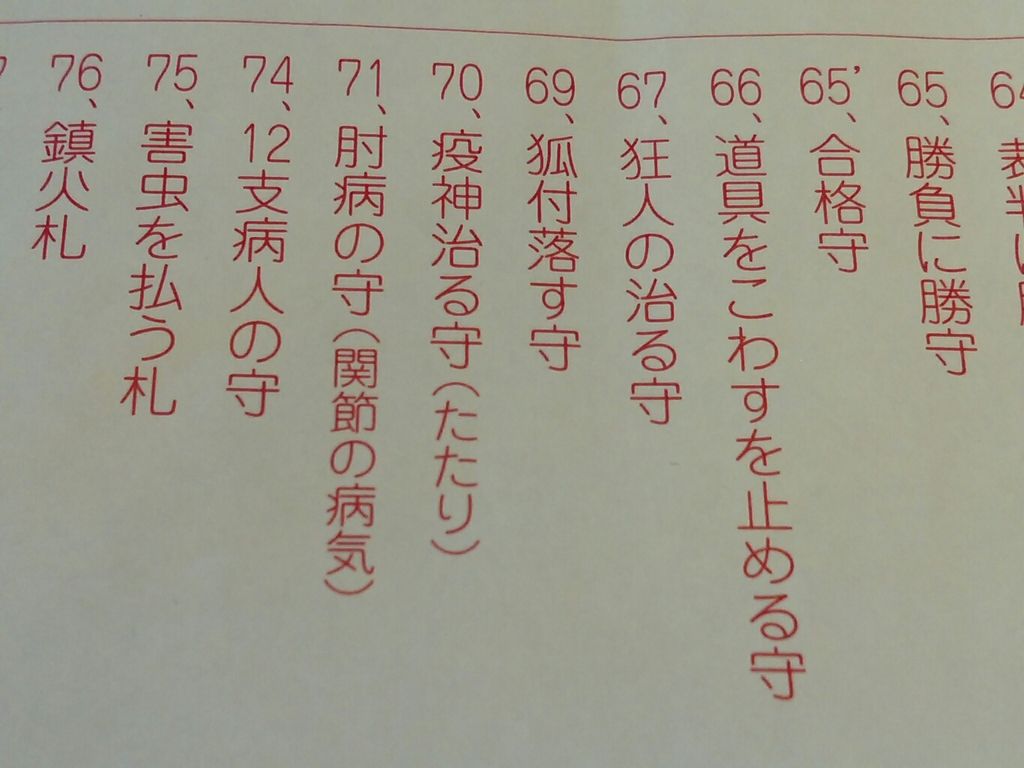 65、勝負に勝守
65’、合格守
66、道具をこわすを止める守
67、狂人の治る守
69、狐付落す守
70、疫神治る守（たたり）
71、肘病の守（関節の病気）
74、12支病人の守
75、害虫を払う札
76、鎮火札